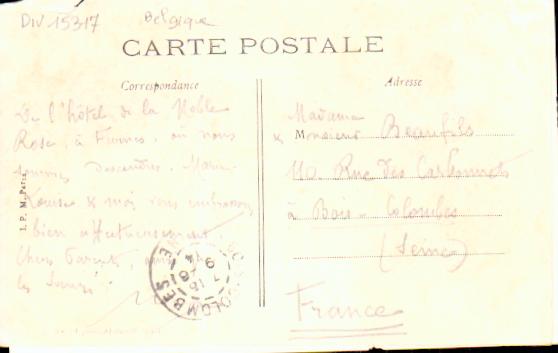 DIV 15317 Belgique
CARTE POSTALE
Correspondance
Adresse
De l'hôtel de la Noble
Rose, à Furnes, où nous
sommes descendus. Marie
Louise & moi vous embrassons
bien affectueusement
Chers Parents,
Madame
& Monsieur Beaufils
110 Rue des Carbonnets
à Bois-Colombes
(Seine)
France
I. P. M. Paris
COLOMBES